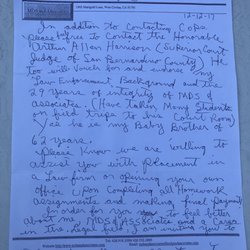 12-12-17
In addition to contacting Cops
please before to contact the Honorable
Arthur Allen Harrison (Superior Court
Judge of San Bernardino County) He
too will vouch for and endorse my
Law Enforcement Background and the
29 years of integrity of MDS &
Associates. (Have taken many students
on field trips to his Court Room)
as he is my Baby Brother of
62 years.
Please Know we are willing to
assist you with placement in
a Law firm or opening your own
office upon Completing all Homework
Assignments and making final payments
In order for you to feel better
about me, MDS & Associates and a Career
in the Legal field I am inviting you to